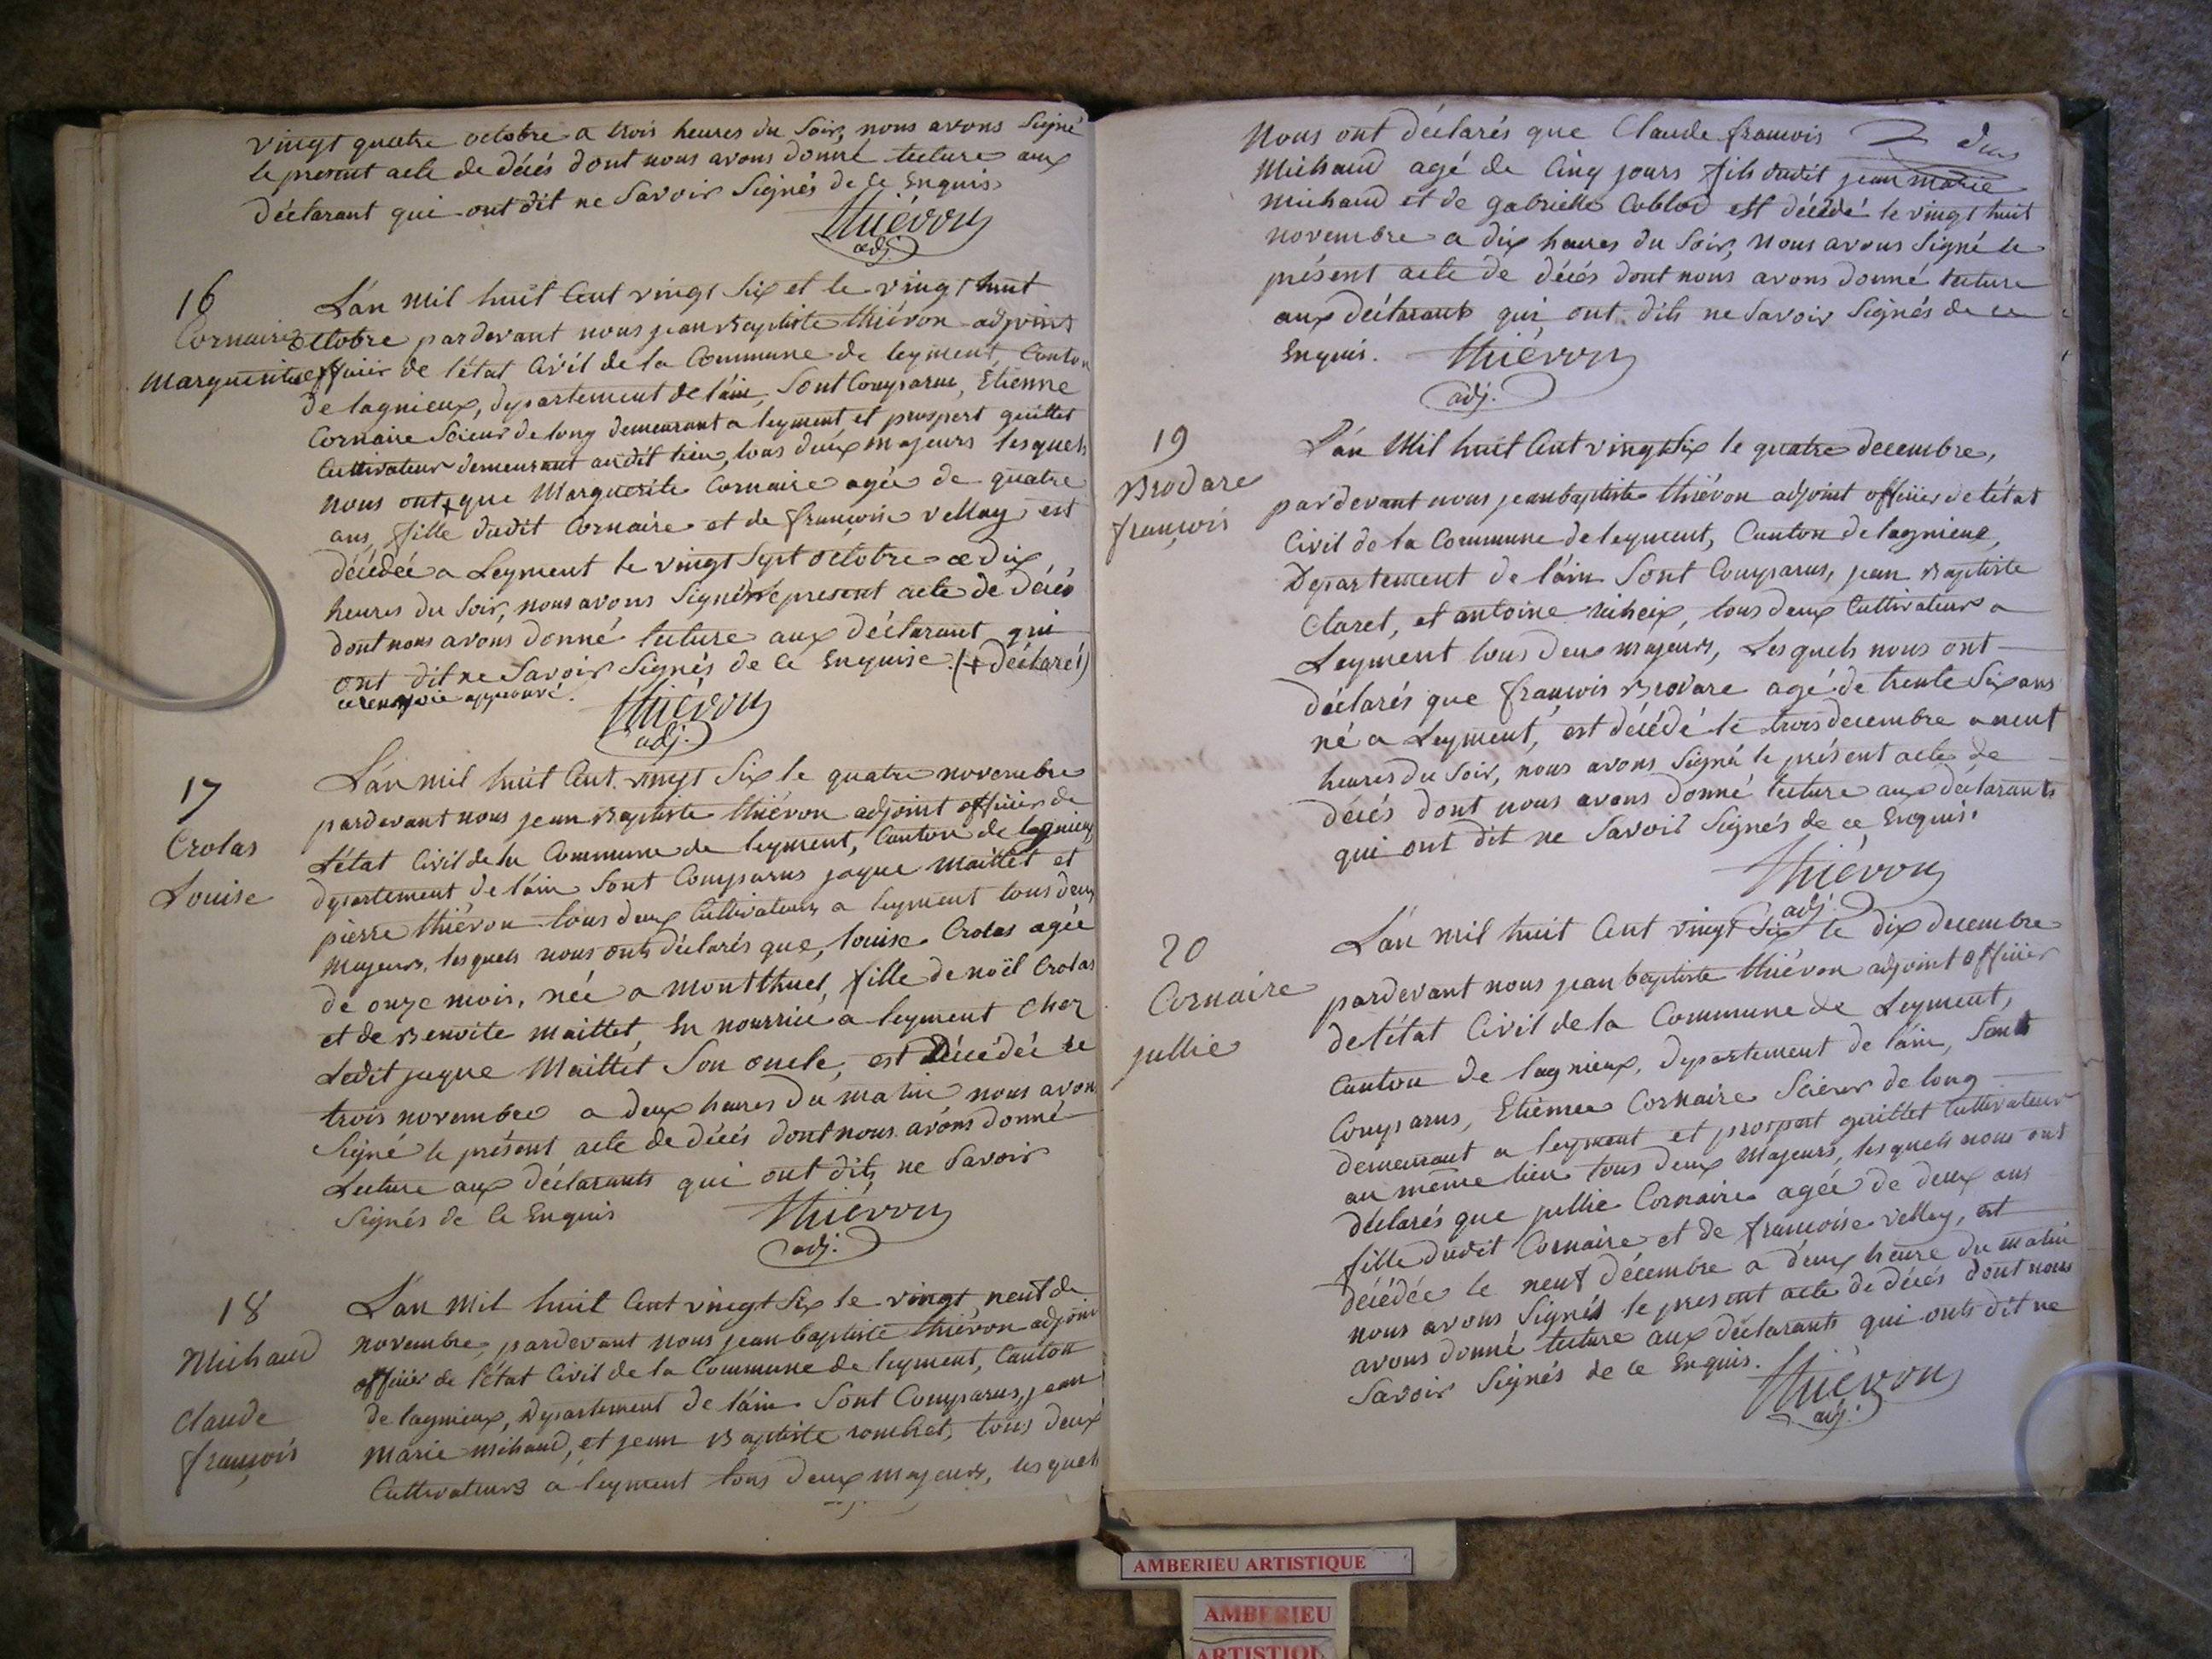 vingt quatre octobre a trois heures du soir, nous avons signé
le present acte de décés dont nous avons donné lecture aux
déclarant qui ont dit ne savoir signés de ce enquis
thiévon
adj.
16
Cornaire
Marguerite
L'an mil huit cent vingt six et le vingt huit
octobre pardevant nous jean Baptiste thiévon adjoint
officier de l'état civil de la commune de leyment, canton
de lagnieux, departement de l'ain, sont comparus, Etienne
Cornaire scieur de long demeurant a leyment, et prospert guillet
cultivateur demeurant audit lieu, tous deux majeurs lesquels
nous ont + que Marguerite Cornaire agée de quatre
ans, fille dudit Cornaire et de françoise vellay est
décédée a Leyment le vingt sept octobre a dix
heures du soir, nous avons signé le present acte de décés
dont nous avons donné lecture aux déclarant qui
ont dit ne savoir signés de ce enquise. (+ déclaré)
ce renvoie approuvé.
thiévon
adj.
17
Crolas
Louise
L'an mil huit cent vingt six le quatre novembre
pardevant nous jean Baptiste thiévon adjoint officier de
L'état civil de la commune de leyment, canton de lagnieux
departement de l'ain sont comparus jaque Maillet et
pierre thiévon tous deux cultivateurs a leyment tous deux
majeurs, lesquels nous onts déclarés que, louise Crolas agée
de onze mois, née a Montthuel, fille de noël Crolas
et de Benoite Maillet, en nourrice a leyment chez
Ledit jaque Maillet son oncle, est décédée le
trois novembre a deux heures du matin nous avons
signé le présent acte de décés dont nous avons donné
Lecture aux déclarants qui ont dits ne savoir
signés de ce enquis
thiévon
adj.
18
Michaud
Claude
françois
L'an mil huit cent vingt six le vingt neuf de
novembre, pardevant nous jean baptiste thiévon adjoint
officier de l'état civil de la commune de leyment, canton
de lagnieux, departement de l'ain. sont comparus, jean
Marie Mihaud, et jean Baptiste rombet, tous deux
cultivateurs a leyment tous deux majeurs, lesquels
Nous ont déclarés que Claude françois
Michaud agé de cinq jours fils dudit jean marie
michaud et de gabrielle Coblod est décédé le vingt huit
novembre a dix heures du soir, nous avons signé le
présent acte de décés dont nous avons donné lecture
aux déclarants qui ont dits ne savoir signés de ce
enquis.
thiévon
adj.
19
Brodare
françois
L'an mil huit cent vingt six le quatre decembre,
pardevant nous jean baptiste thiévon adjoint officier de l'état
civil de la commune de leyment, canton de lagnieux,
Departement de l'ain sont comparus, jean Baptiste
Claret, et antoine tous deux cultivateurs a
Leyment tous deux majeurs, Lesquels nous ont
déclarés que françois Brodare agé de trente six ans
né a Leyment, est décédé le trois decembre a neuf
heures du soir, nous avons signé le présent acte de
décés dont nous avons donné lecture aux déclarants
qui ont dit ne savoir signés de ce enquis.
thiévon
adj.
20
Cornaire
jullie
L'an mil huit cent vingt six le dix decembre
pardevant nous jean baptiste thiévon adjoint officier
de l'état civil de la commune de Leyment,
canton de lagnieux, departement de l'ain, sont
comparus, Etienne Cornaire scieur de long
demeurant a leyment et prospert guillet cultivateur
au même lieu tous deux Majeurs, lesquels nous ont
déclarés que jullie Cornaire agée de deux ans
fille dudit Cornaire et de françoise vellay, est
décédée le neuf décembre a deux heure du matin
nous avons signés le present acte de décés dont nous
avons donné lecture aux déclarants qui onts dit ne
savoir signés de ce enquis.
thiévon
adj.
AMBERIEU ARTISTIQUE
AMBERIEU
ARTISTIQU